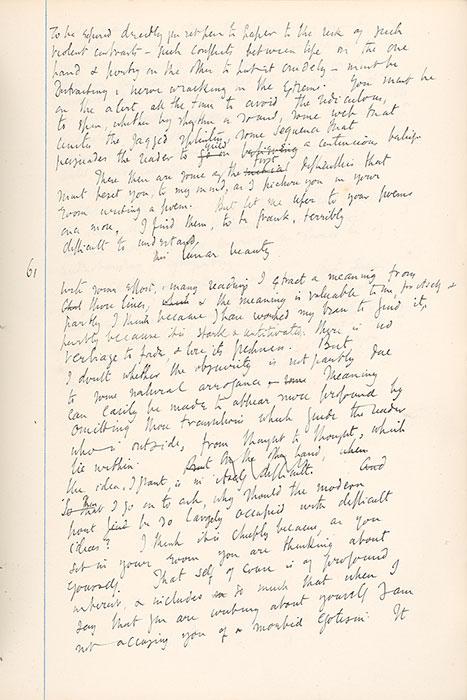 To be exposed directly you set pen to paper to the risk of such
violent contrasts - such conflicts between life on the one
hand & poetry on the other to put it crudely - must be
distracting & nerve wracking in the extreme. You must be
on the alert, all the time to avoid the ridiculous,
to spin, whether by rhythm or sound, some web that
unites the jagged splinters, some sequence that
persuades the reader to yield a continuous belief.
There then are some of the first difficulties that
must beset you, to my mind, as I picture you in your
room writing a poem. But let me refer to your poems
once more. I find them, to be frank, terribly
difficult to understand.
this lunar beauty
61
With some effort, many readings I extract a meaning from
those lines, & the meaning is valuable to me, &
partly I think because I have worked my brain to find it,
partly because it is stark & There is no
verbiage to fade & lose its freshness. But
I doubt whether the obscurity is not partly due
to some natural arrogance - some Meaning
can easily be made to appear more profound by
omitting those transitions which guide the reader
who is outside, from thought to thought, which
lie within. But On the other hand, when
the idea, I grant, is in itself difficult. And
Then I go on to ask, why should the modern
poet be so largely occupied with difficult
ideas? I think it is chiefly because, as you
sit in your room you are thinking about
yourself. That self of course is of profound
interest, & includes so much that when I
say that you are writing about yourself I am
not accusing you of a morbid egotism. It